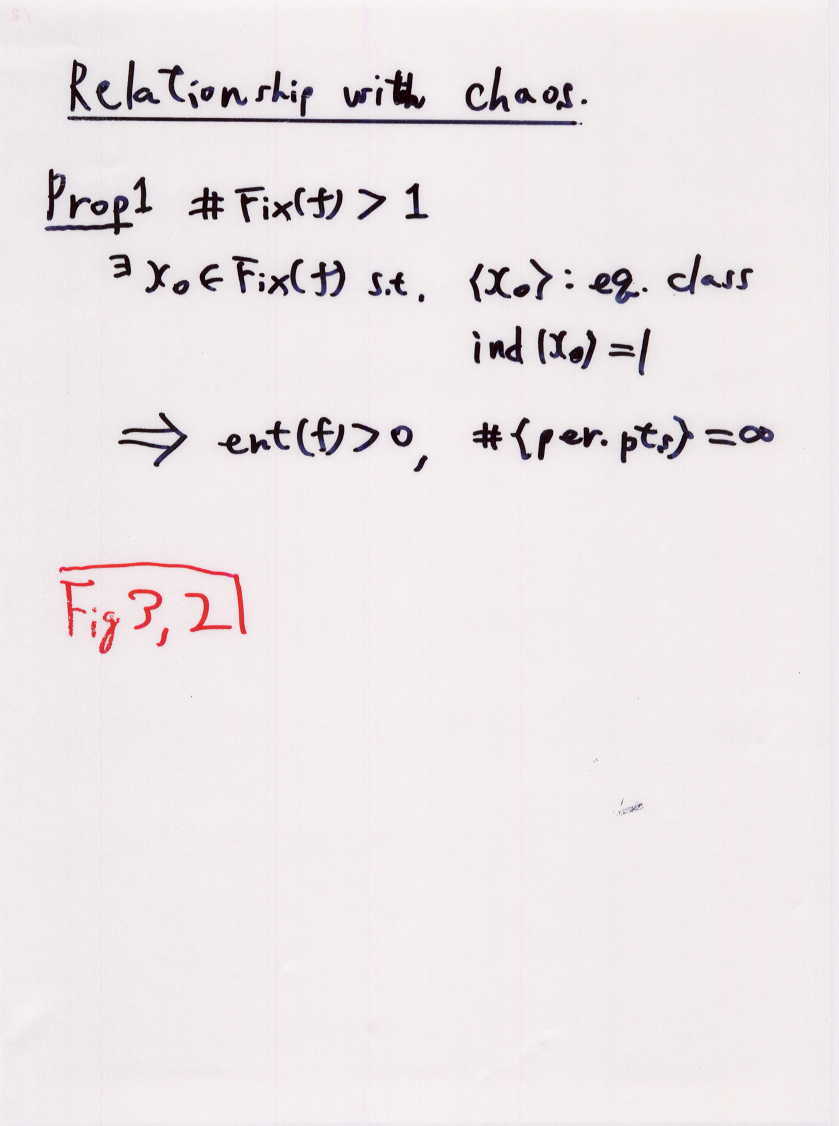 Relationship with chaos.
Prop1 # Fix(f) > 1
∃ x₀ ∈ Fix(f) s.t. {x₀} : eq. class
ind (x₀) = 1
⇒ ent(f) > 0, #{per. pts} = ∞
Fig 3, 2